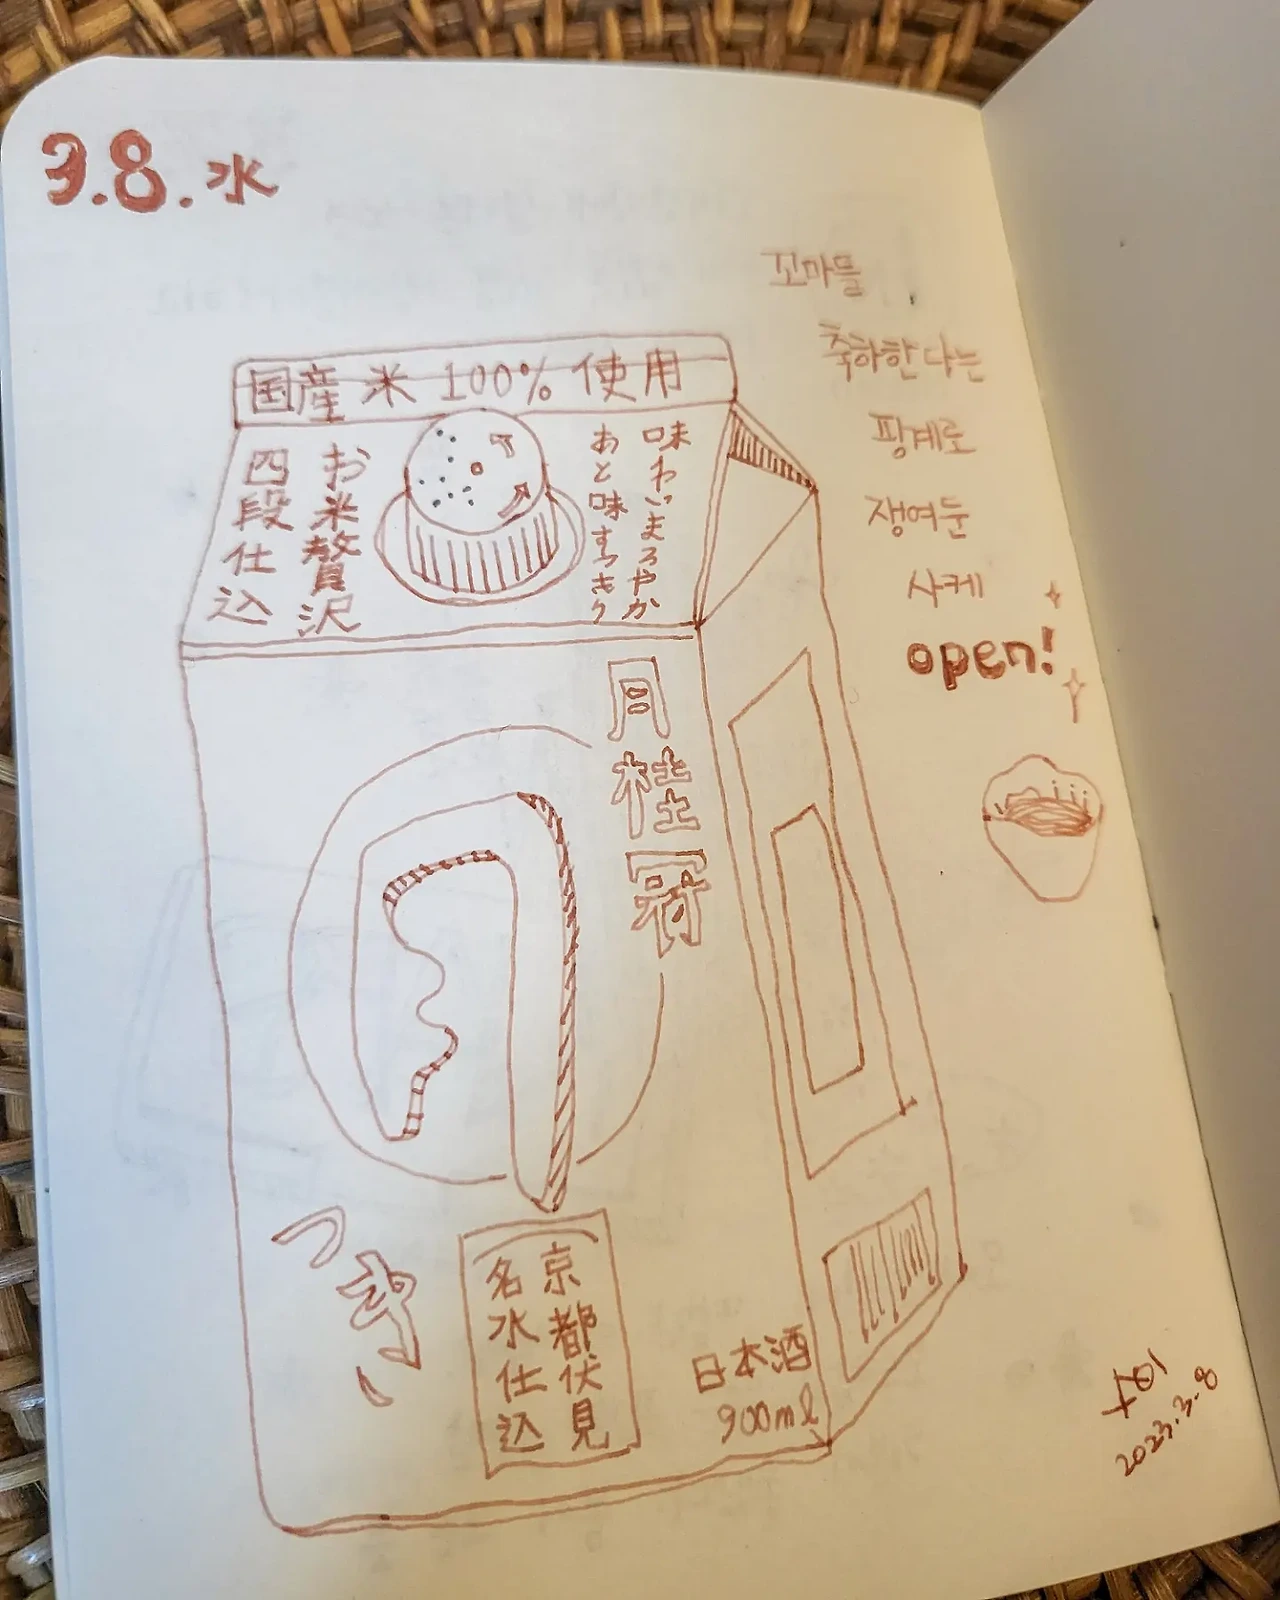 3.8.水
꼬마들
축하한다는
핑계로
쟁여둔
사케
open!
国産米100%使用
お米贅沢
四段仕込
味わいまろやか
あと味すっきり
月桂冠
つき
京都伏見
名水仕込
日本酒
900ml
2023.3.8